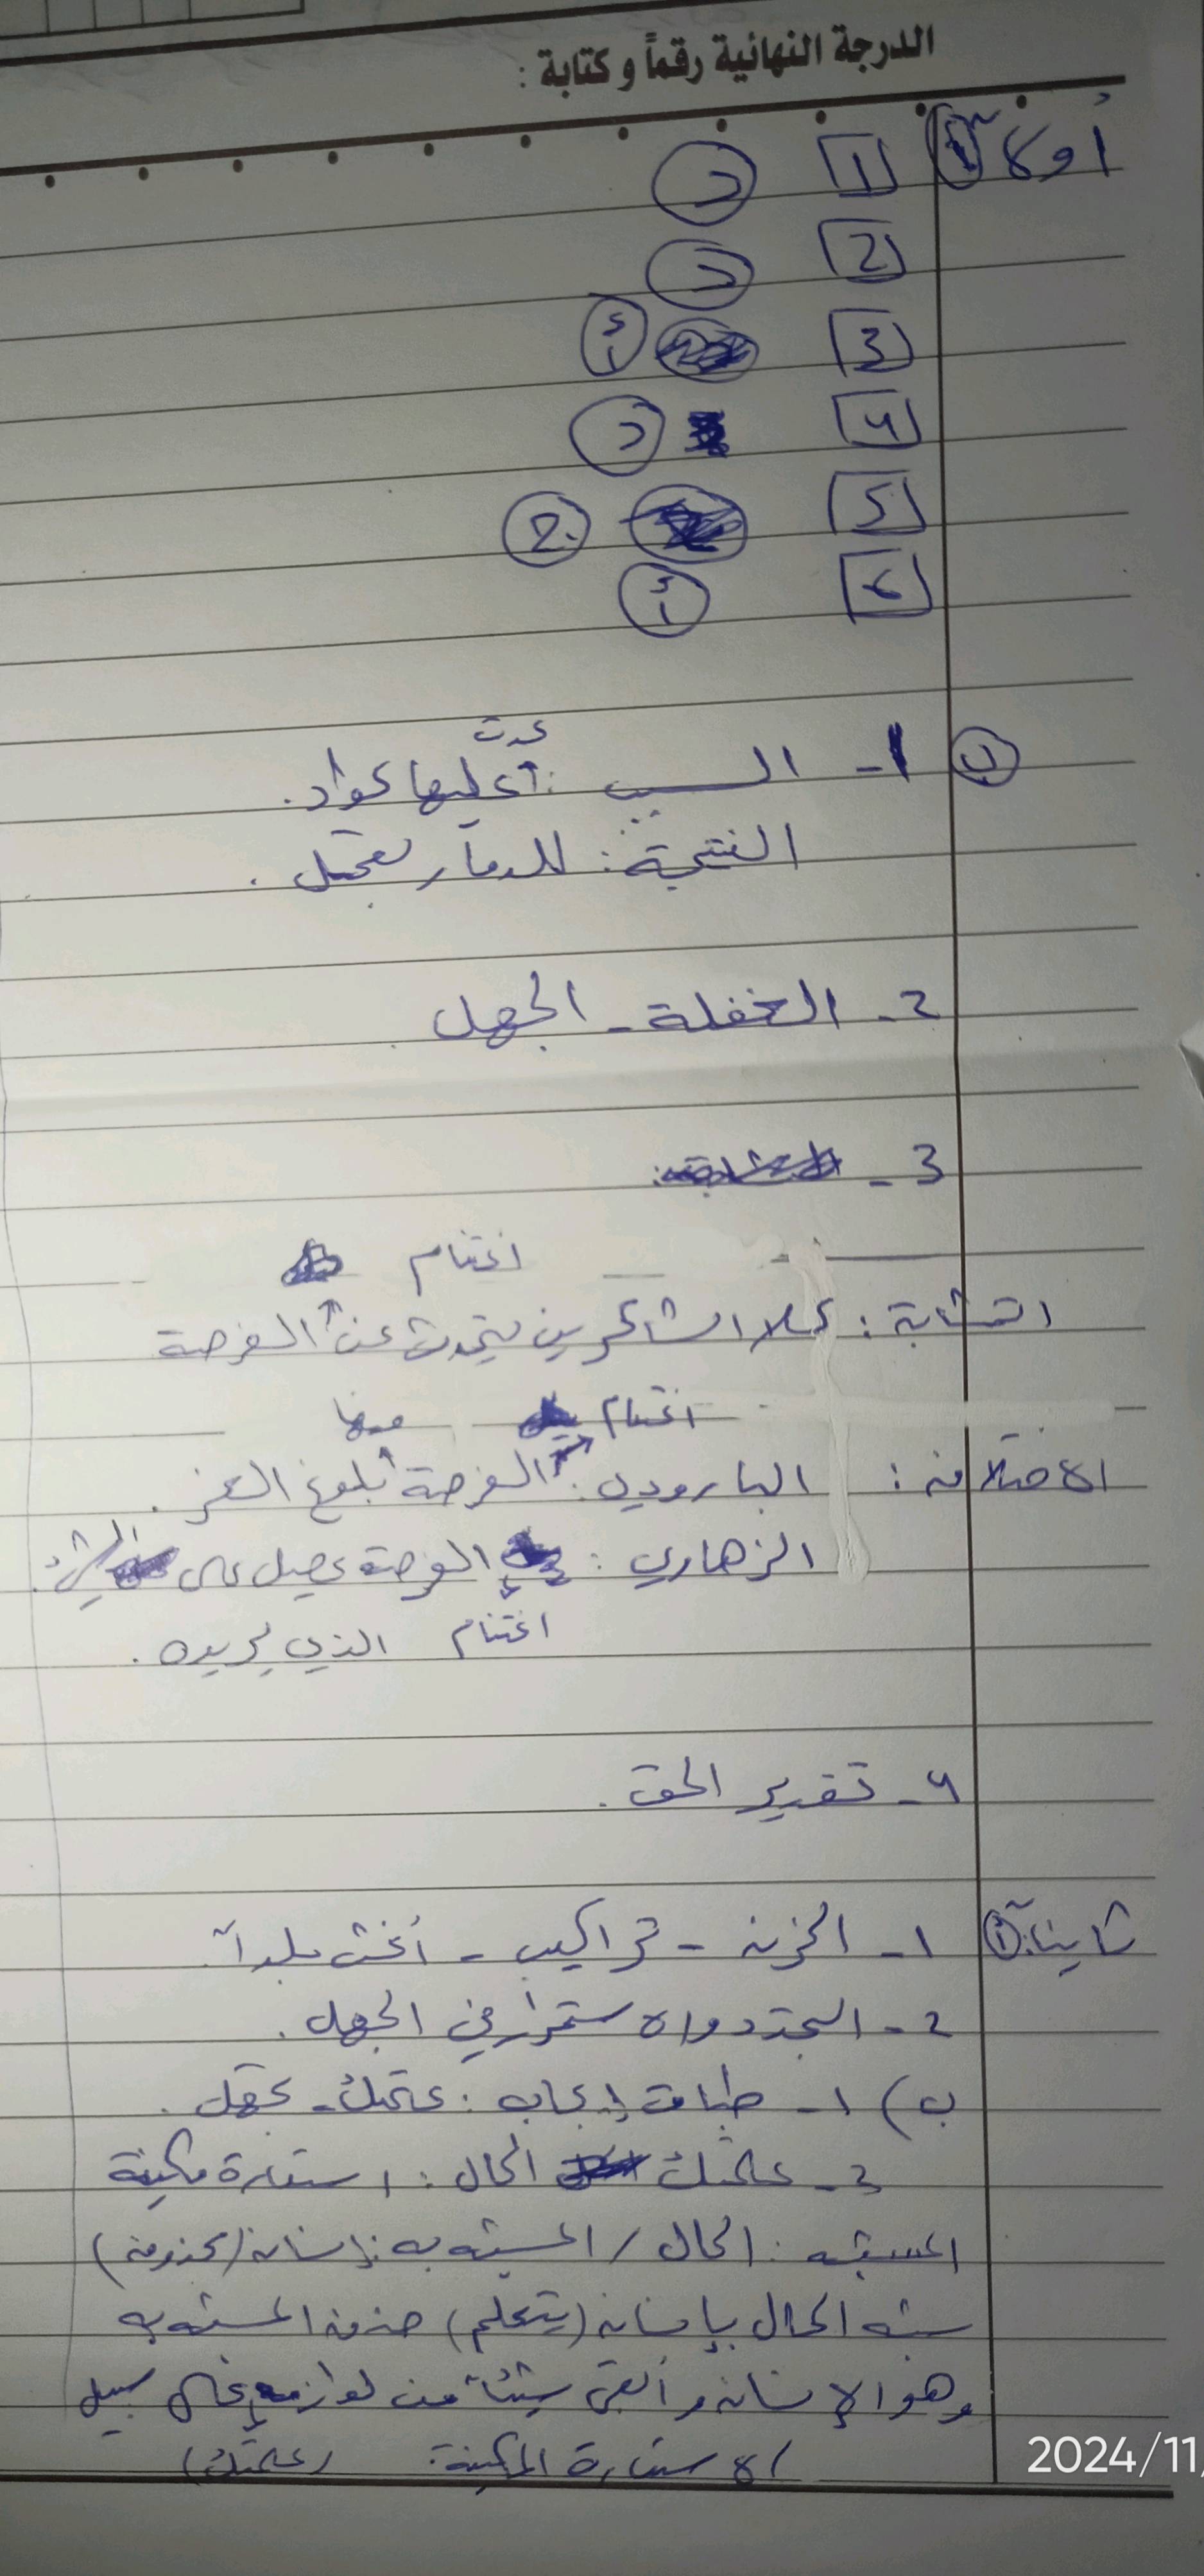 الدرجة النهائية رقماً وكتابة :
أولاً
1 د
2 د
3 أ
4 د
5
6 أ
ب 1- السبب : عدت عليها عواد.
النتيجة : للدمار تعجل .
2- الغفلة - الجهل .
3-
اغتنام
التشابة : كلا الشاعرين يتحدث عن الفرصة
اغتنام فيها
الاختلاف : البارودي : الفرصة بلوغ العز .
الزهاري : الفرصة يحصل على الشيء
اغتنام الذي يريده .
4- تقدير الحق .
ثانياً: 1- الحزن - تراكيب - أغث بلداً
2- التجدد والاستمرار في الجهل .
ب) 1- طباق إيجاب : علمك - تجهل .
2- علمتك الحال : استعارة مكنية
المشبه : الحال / المشبه به : إنسان (محذوف)
شبه الحال بإنسان (يتعلم) حذف المشبه به
وهو الإنسان وأبقى شيئاً من لوازمه على سبيل
الاستعارة المكنية . (علمتك)
2024/11/